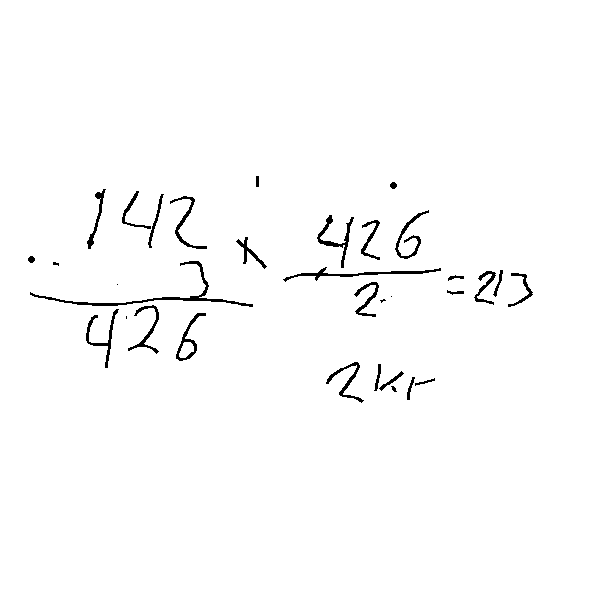 142 × 426
3
426
2 = 213
2kr